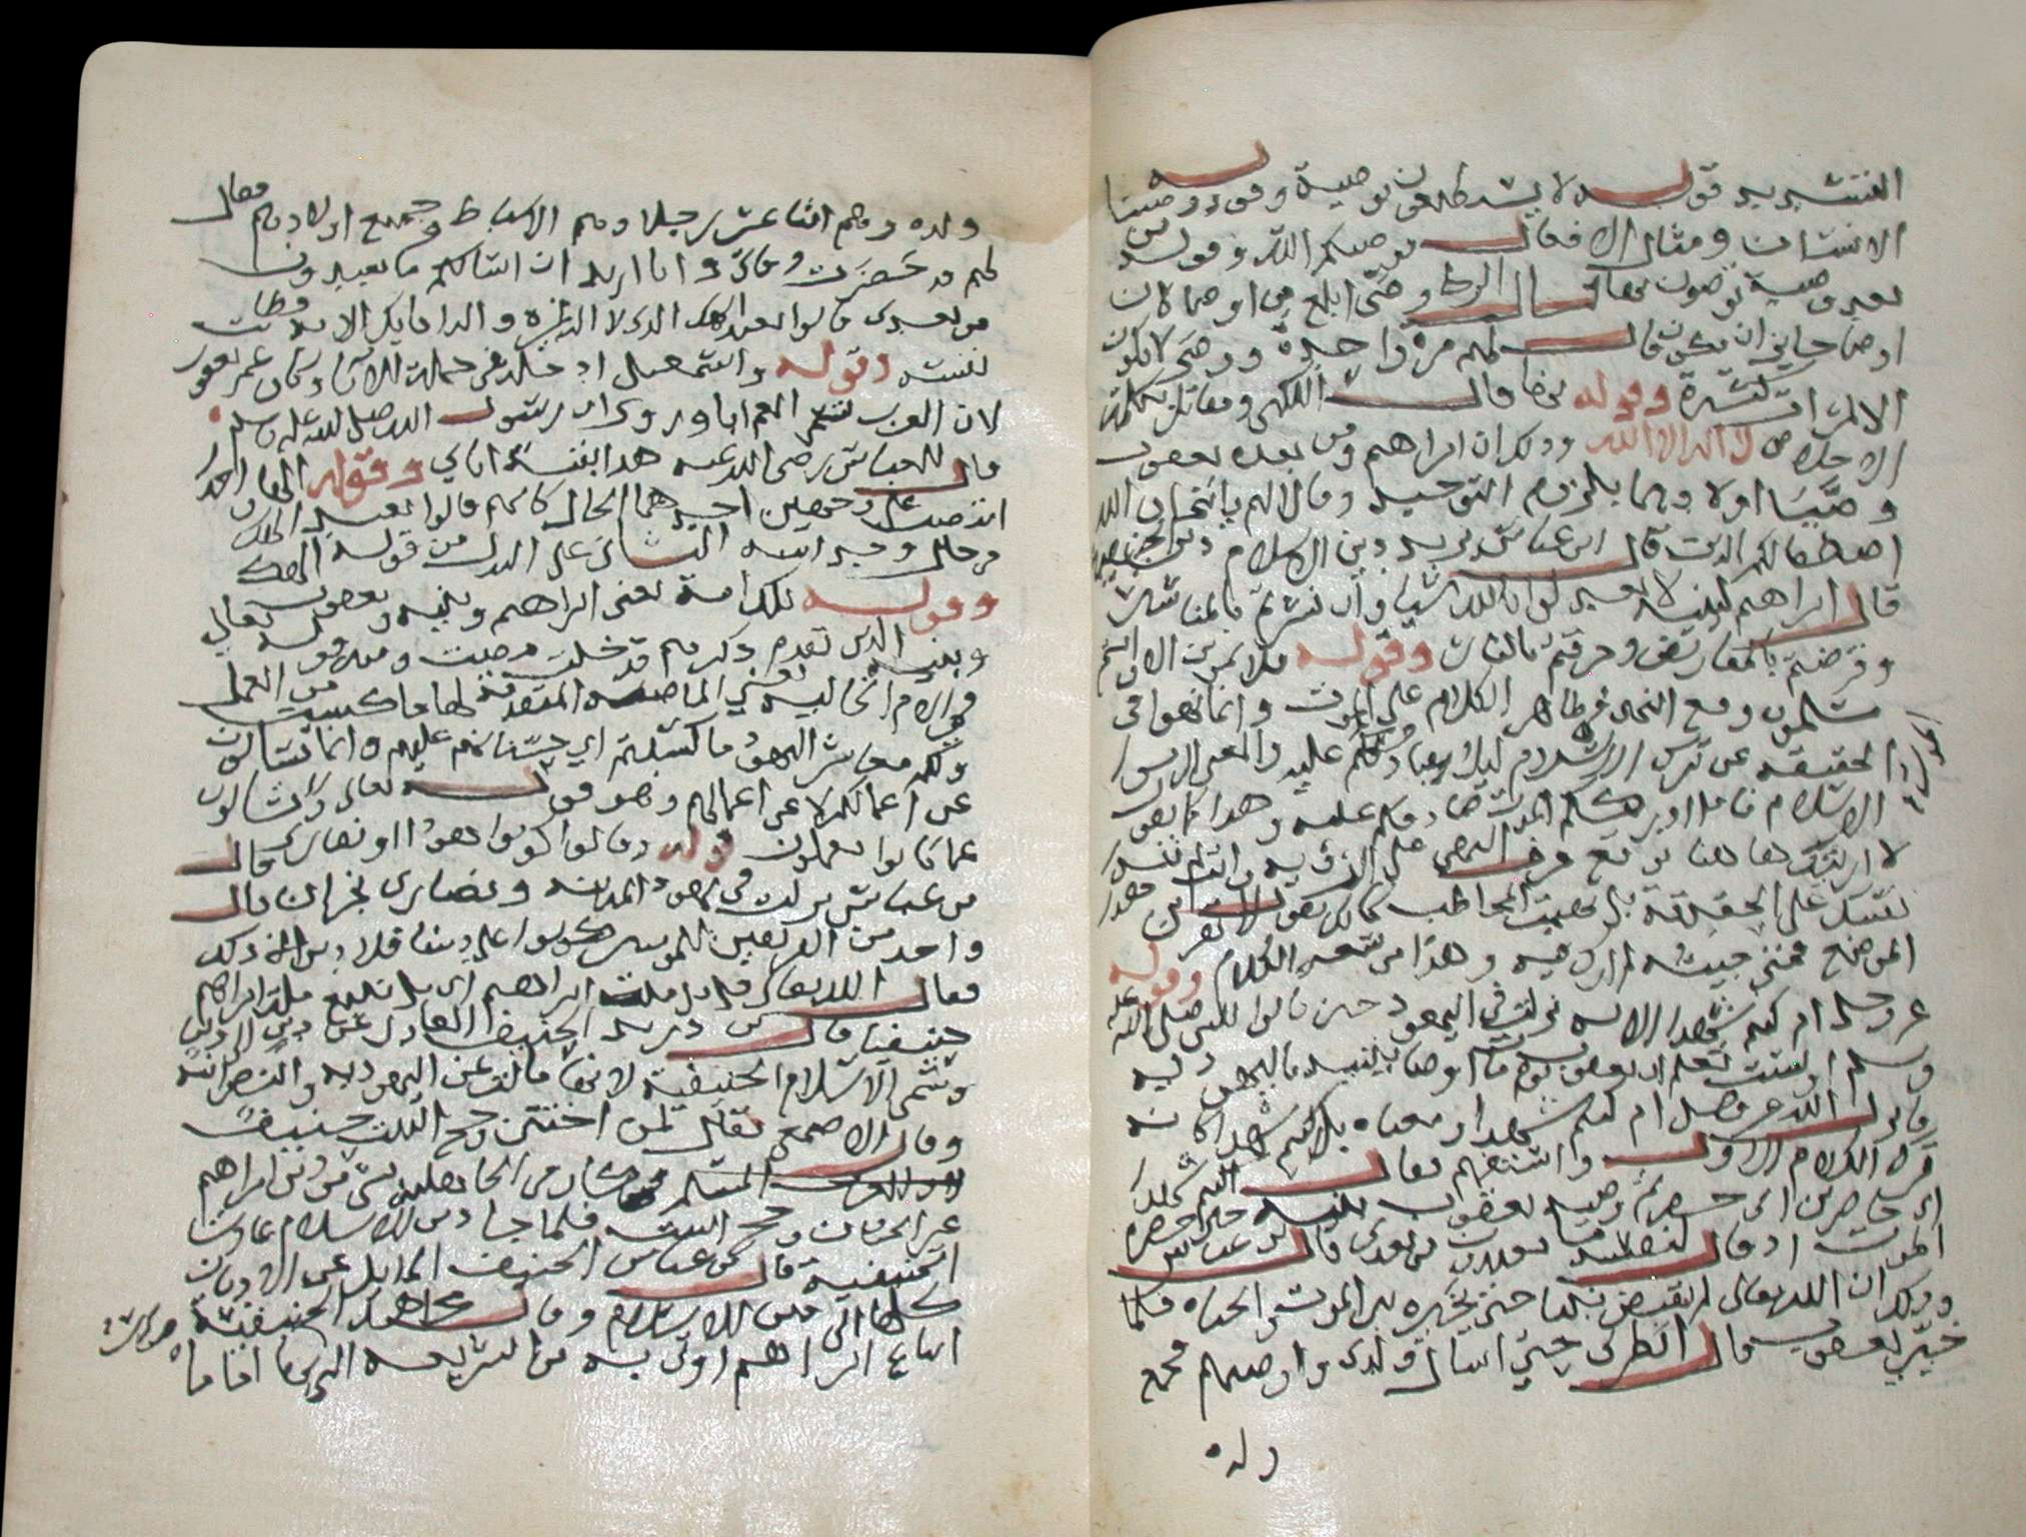 التشديد قوله لا يستطيعون توصية وقوله ووصينا
الانسان ومثال الافعال يوصيكم الله وقوله من
بعد وصية توصون بها قال الزجاج وصّى ابلغ من اوصا لان
اوصا جايز ان يكون قال لهم مرة واحدة ووصّى لا يكون
الا لمرات كثيرة وقوله بها قال الكلبي ومقاتل بكلمة
الاخلاص لا اله الا الله وذلك ان ابراهيم ومن بعده يعقوب
وصّيا اولادهما بلزوم التوحيد وقالا لهم يا بني ان الله
اصطفا لكم الدين قال ابن عباس يريد دين الاسلام دين الحنيفية
قال ابراهيم لبنيه لا تعبدلوا بالله شيا وان نشرتم بالمناشير
وقرضتم بالمقاريض وحرقتم بالنار وقوله فلا تموتن الا وانتم
مسلمون وقع النهي في ظاهر الكلام على الموت وانما نهوا في
الحقيقة عن ترك الاسلام ليلا يصادفكم عليه والمعنى الزموا
الاسلام فاذا ادرككم الموت صادفكم عليه وهذا كما يقول
لا اريتك هاهنا توقع حرف النهي على الرؤية وانت لم تنه نفسك
على الحقيقة بل نهيت المخاطب كانك تقول لا تقربن هذا
الموضع فمتى جيته لم ارك فيه وهذا من سعة الكلام وقوله
عز وجل ام كنتم شهدا الاية نزلت في اليهود حين قالوا للنبي صلى الله عليه
وسلم الست تعلم ان يعقوب يوم مات اوصا بنيه باليهودية
فانزل الله عز وجل ام كنتم شهدا ومعناه بل اكنتم شهدا كانه
ترك الكلام الاول واستفهم فقال
اي حاضرين اي حضرتم وصية يعقوب بنيه حين حضره
الموت اذ قال لبنيه ما تعبدون من بعدي قال ابن عباس
وذلك ان الله تعالى لم يقبض نبيا حتى يخيره بين الموت والحياة فلما
خيّر يعقوب قال انظرني حتى اسال ولدي واوصيهم فجمع
ولده
ولده وهم اثنا عشر رجلا وهم الاسباط وجميع اولادهم فقال
لهم قد حضرت وفاتي وانا اريد ان اسالكم ما تعبدون
من بعدي قالوا نعبد الهك الذي لا اله غيره واله ابايك الاية فطابت
نفسه وقوله واسمعيل ادخله في جملة الابا وكان عم يعقوب
لان العرب تسمي العم ابا وروي ان رسول الله صلى الله عليه وسلم
قال للعباس رضي الله عنه هذا بقية اباي وقوله الها واحدا
انتصب على وجهين احدهما الحال كانهم قالوا نعبد الهك
في حال وحدانيته الثاني على البدل من قوله الهك
وقوله تلك امة يعني ابراهيم وبنيه ويعقوب
وبنيه الذين تقدم ذكرهم قد خلت مضت ومنه قوله تعالى
في الايام الخالية يعني الماضية المتقدمة لها ما كسبت من العمل
ولكم معاشر اليهود ما كسبتم اي حسابهم عليهم وانما تسالون
عن اعمالكم لا عن اعمالهم وهو قوله تعالى ولا تسالون
عما كانوا يعملون قوله وقالوا كونوا هودا او نصارى قال
بن عباس نزلت في يهود المدينة ونصارى نجران قال كل
واحد من الفريقين للمومنين كونوا على ديننا فلا دين الا ذلك
فقال الله تعالى قل بل ملة ابراهيم اي بل نتبع ملة ابراهيم
حنيفيا قال بن دريد الحنيف العادل عن دين الى دين
وتسمى الاسلام الحنيفية لانها مالت عن اليهودية والنصرانية
وقال الاصمعي يقال لمن اختتن وحج البيت حنيف
المسلم وكان من الجاهلية من دين ابراهيم
غير الختان وحج البيت فلما جا دين الاسلام عادت
الحنيفية قال بن عباس الحنيف المايل عن الاديان
كلها الى دين الاسلام وقال مجاهد الحنيفية
اتباع ابراهيم اولى به من الشريعة التي بها اماما